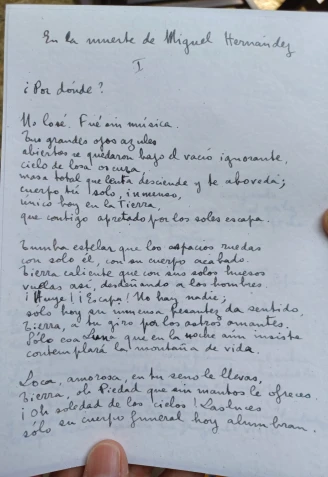 En la muerte de Miguel Hernández
I
¿Por dónde?
No lo sé. Fué sin música.
Tus grandes ojos azules
abiertos se quedaron bajo el vacío ignorante,
cielo de losa oscura,
masa total que lenta desciende y te aboveda;
cuerpo tú solo, inmenso,
único hoy en la Tierra,
que contigo apretado por los soles escapa.
Tumba estelar que los espacios ruedas
con solo él, con su cuerpo acabado.
Tierra caliente que con sus solos huesos
vuelas así, desdeñando a los hombres.
¡Huye! ¡Escapa! No hay nadie;
solo hoy su inmensa pesantez da sentido,
Tierra, a tu giro por los astros amantes.
Sólo esa luna que en la noche aún insiste
contemplará la montaña de vida.
Loca, amorosa, en tu seno le llevas,
Tierra, oh Piedad que sin mantos le ofreces.
¡Oh soledad de los cielos! Las luces
sólo su cuerpo funeral hoy alumbran.